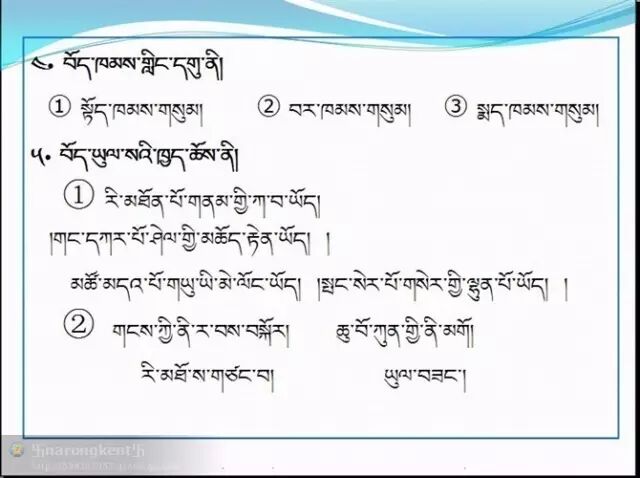 ༤. བོད་ཁམས་གླིང་དགུ་ནི།
① སྟོད་ཁམས་གསུམ། ② བར་ཁམས་གསུམ། ③ སྨད་ཁམས་གསུམ།
༥. བོད་ཡུལ་སའི་ཁྱད་ཆོས་ནི།
① རི་མཐོན་པོ་གནམ་གྱི་ཀ་བ་ཡོད།
།གང་དཀར་པོ་ཤེལ་གྱི་མཆོད་རྟེན་ཡོད། །
མཚོ་མདའ་པོ་གཡུ་ཡི་མེ་ལོང་ཡོད། །སྤང་སེར་པོ་གསེར་གྱི་ལྷུན་པོ་ཡོད། །
② གངས་ཀྱི་ནི་ར་བས་བསྐོར། ཆུ་བོ་ཀུན་གྱི་ནི་མགོ།
རི་མཐོ་ས་གཙང་བ། ཡུལ་བཟང་།
卐narongkent卐